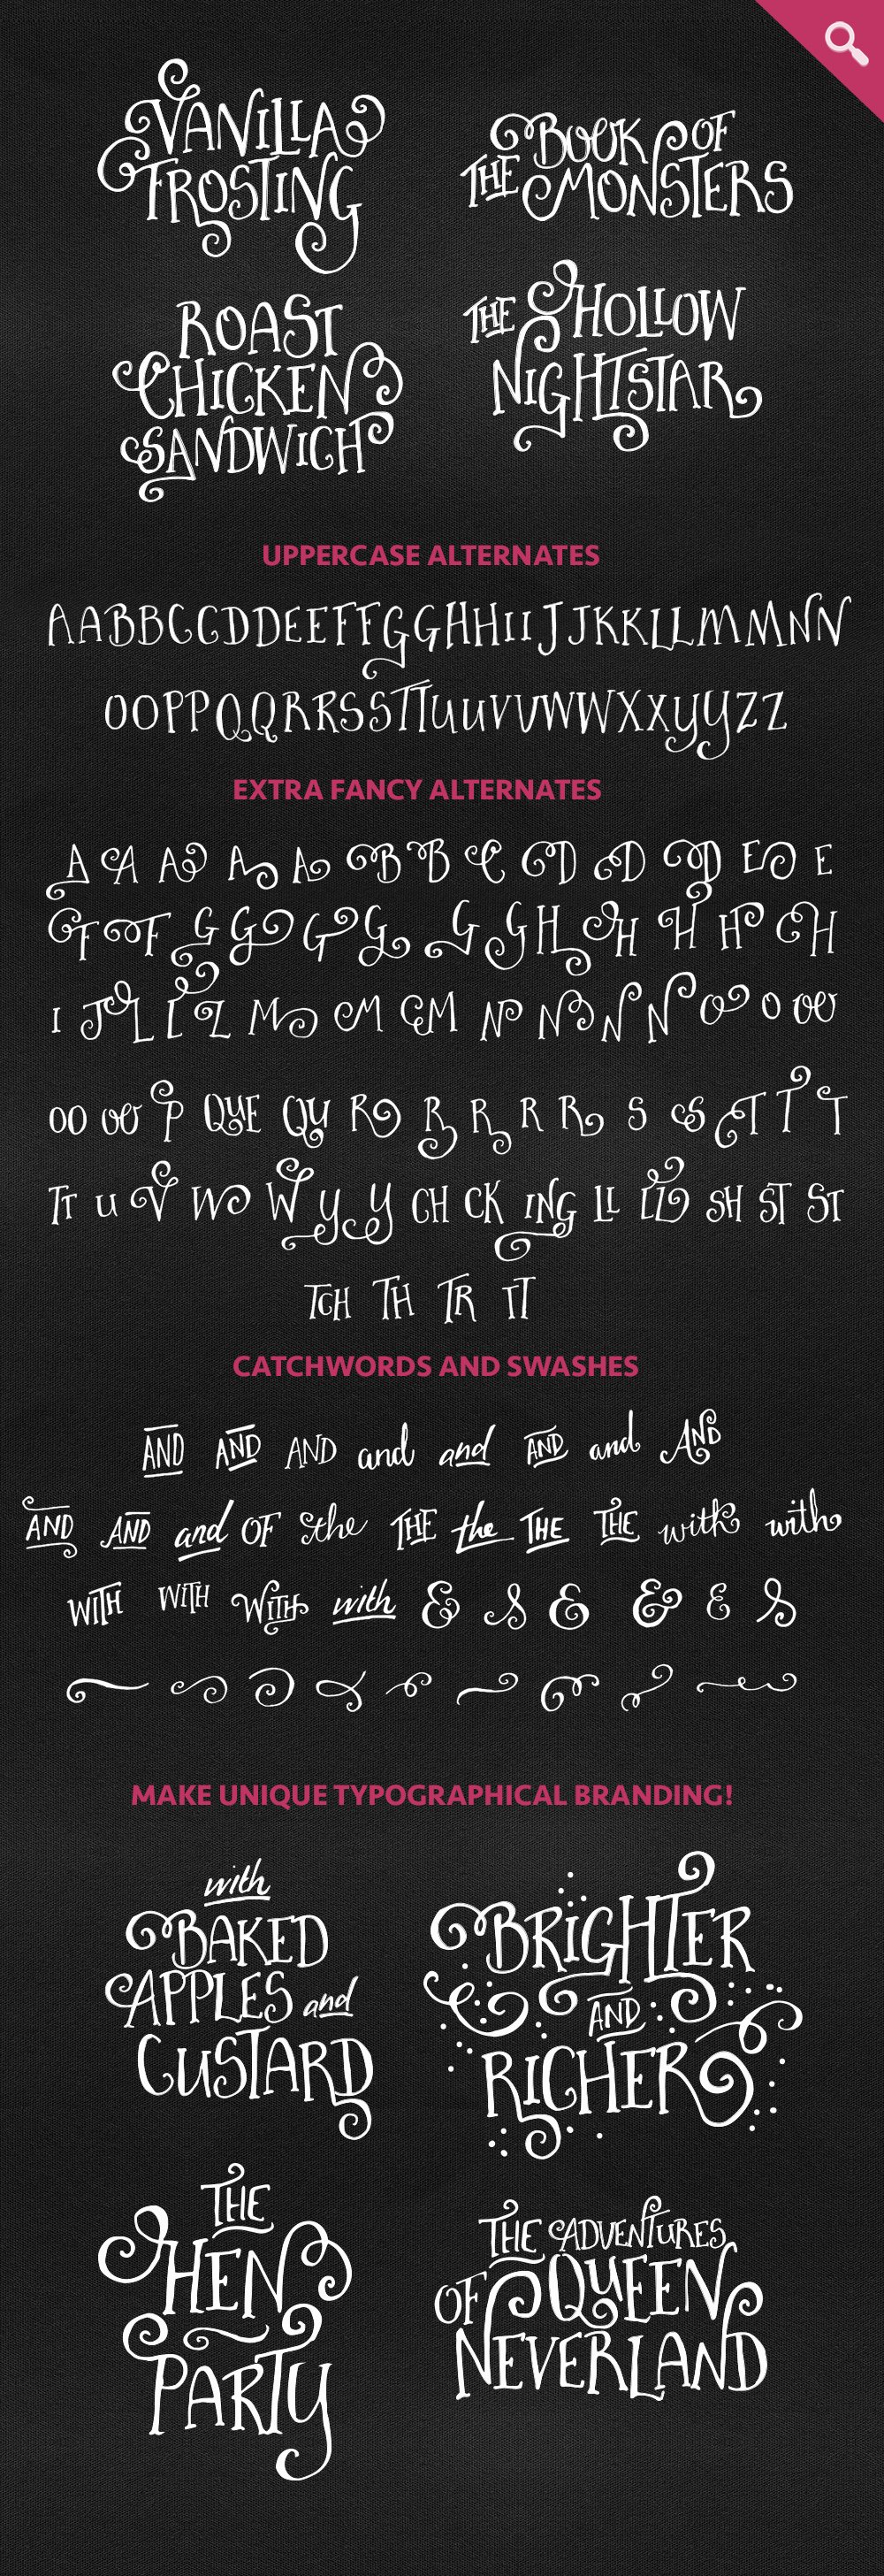 VANILLA
FROSTING
BOOK OF
THE MONSTERS
ROAST
CHICKEN
SANDWICH
THE HOLLOW
NIGHTSTAR
UPPERCASE ALTERNATES
AABBCCDDEEFFGGHHIIJJKKLLMMNN
OOPPQQRRSSTTUUVVWWXXYYZZ
EXTRA FANCY ALTERNATES
A A A A A B B C D D D E E
F F G G G G G G H H H H H
I J L L L M M M N N N N O O OO
OO OO P QUE QU R R R R R S S T T T
TT U V W W Y Y CH CK ING LL LL SH ST ST
TCH TH TR TT
CATCHWORDS AND SWASHES
AND AND AND and and AND and AND
AND AND and OF the THE the THE THE with with
WITH WITH WITH with & & & & & &
MAKE UNIQUE TYPOGRAPHICAL BRANDING!
with
BAKED
APPLES and
CUSTARD
BRIGHTER
AND
RICHER
THE
HEN
PARTY
THE ADVENTURES
OF QUEEN
NEVERLAND